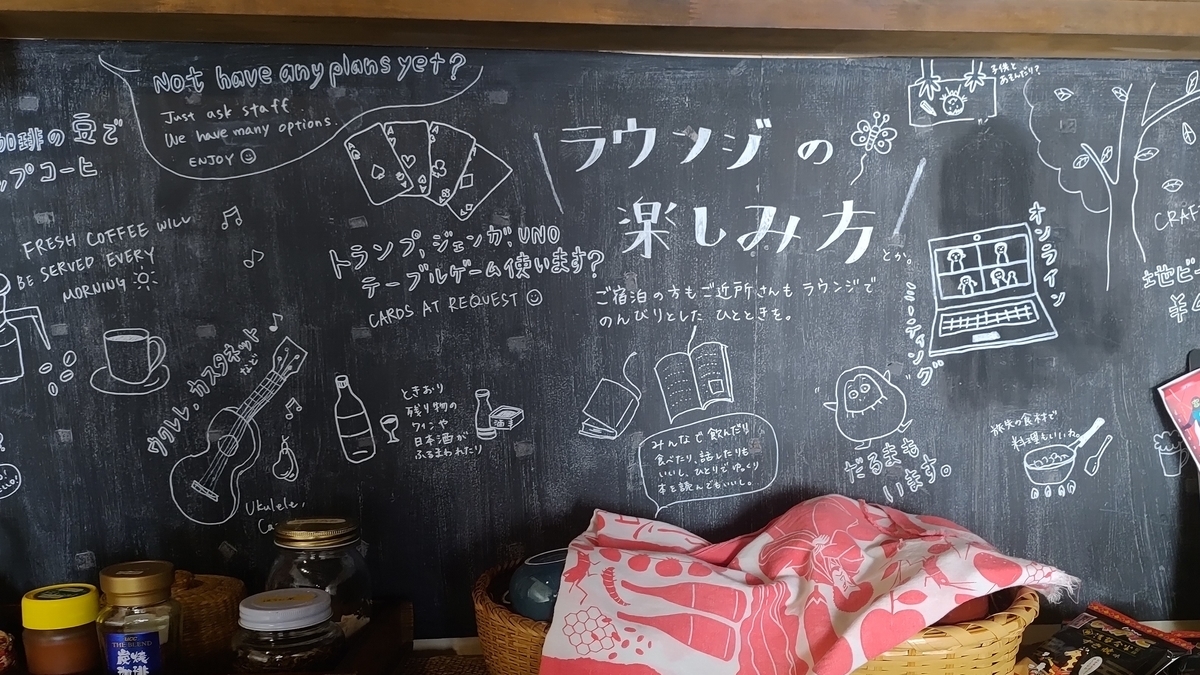 Not have any plans yet?
Just ask staff.
We have many options.
ENJOY
珈琲の豆で
ップコーヒ
FRESH COFFEE WILL
BE SERVED EVERY
MORNING
ラウンジの
楽しみ方
とか。
ご宿泊の方もご近所さんもラウンジで
のんびりとしたひとときを。
トランプ,ジェンガ,UNO
テーブルゲーム使います?
CARDS AT REQUEST
子供と
あそんだり?
オンライン
ミーティング
CRAF
地ビー
ウクレレ・カスタネット
など
Ukulele,
Ca
ときおり
残り物の
ワインや
日本酒が
ふるまわれたり
酒
みんなで飲んだり
食べたり、話したりも
いいし、ひとりでゆっくり
本を読んでもいいし。
だるまも
います。
旅先の食材で
料理もいいね
UCC
THE BLEND
炭焼
珈琲